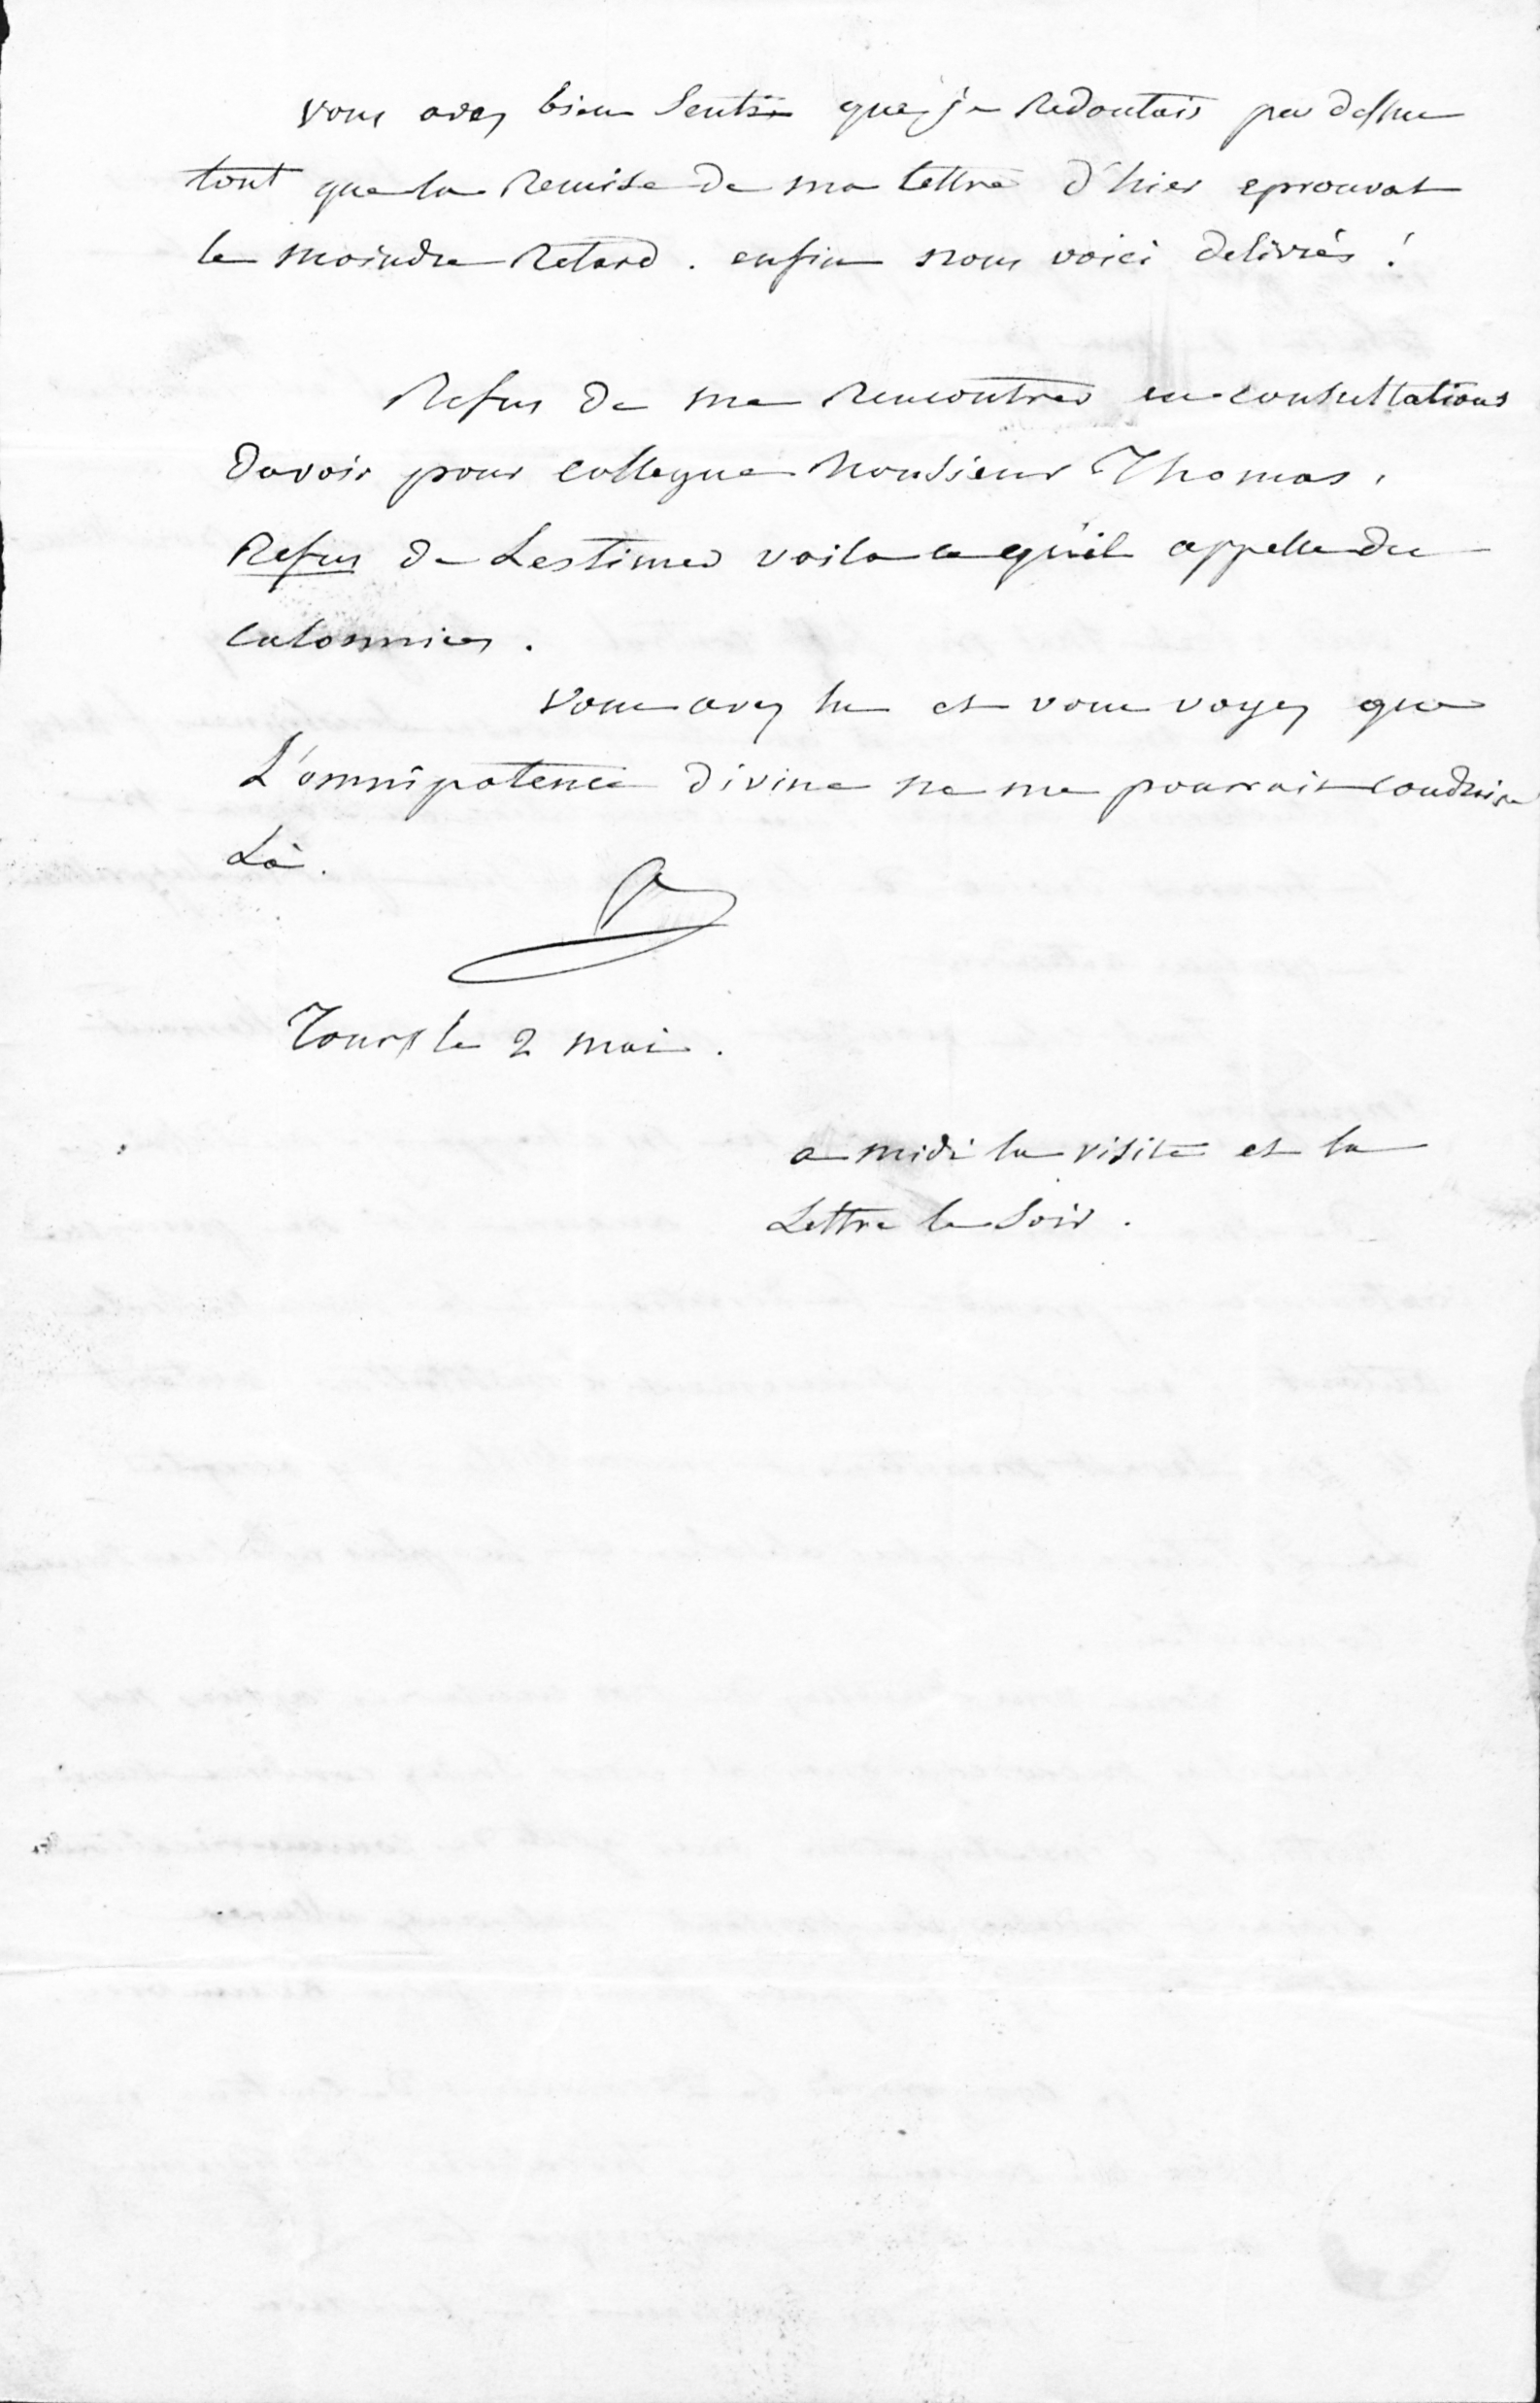 vous avez bien senti que je redoutais par dessus
tout que la remise de ma lettre d'hier eprouvat
le moindre retard. enfin nous voici delivrés !
Refus de me rencontrer en consultations
davoir pour collegue monsieur Thomas,
Refus de Lestimer voila ce qu'il appelle des
calomnies.
vous avez lu et vous voyez que
L'omnipotence divine ne me pourrait conduire
Là.
Tours le 2 mai.
a midi la visite et la
Lettre le soir.